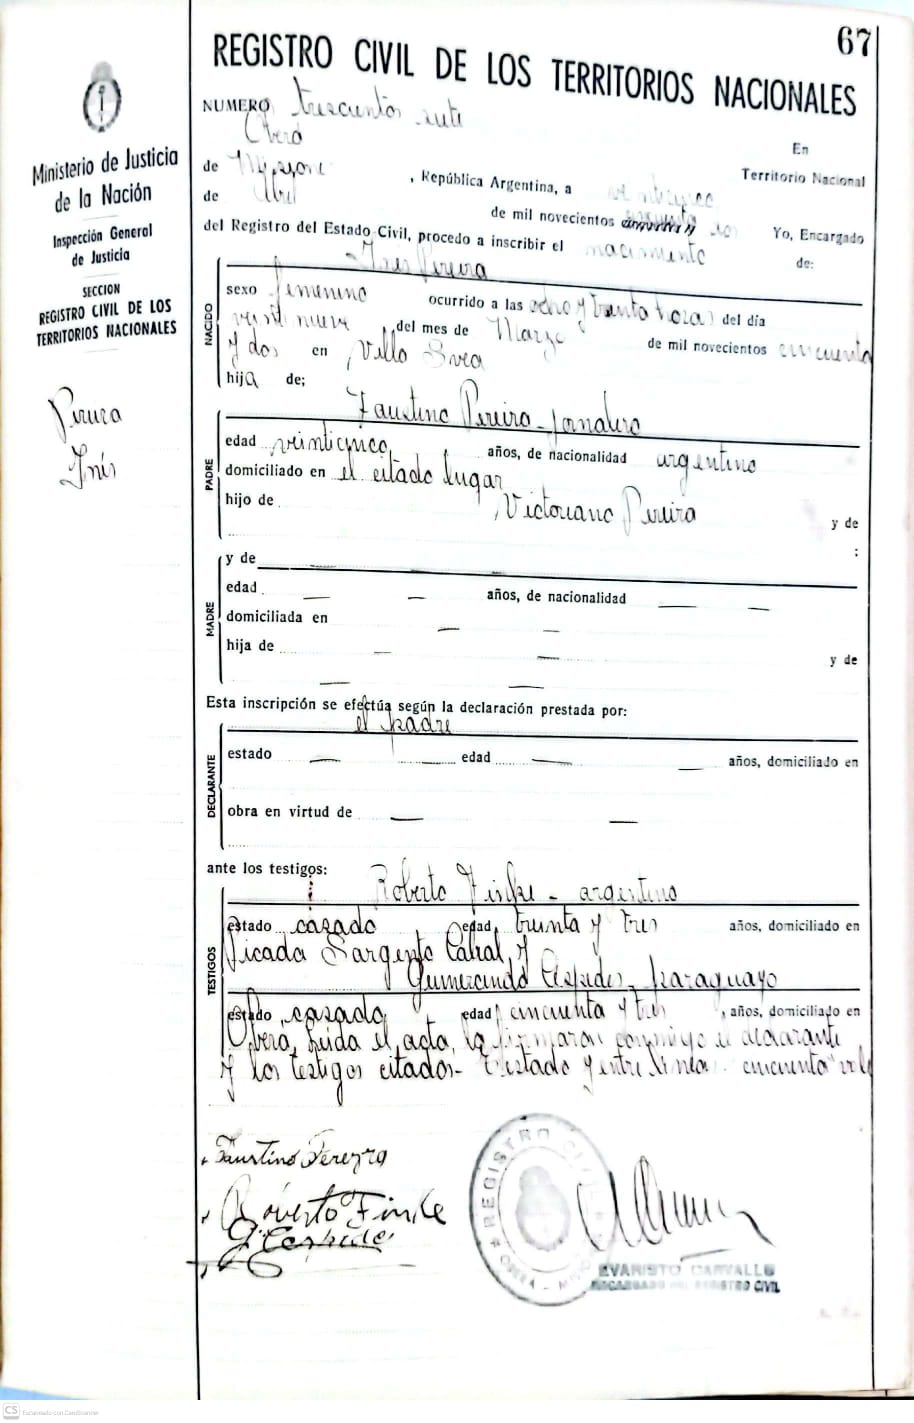 67
REGISTRO CIVIL DE LOS TERRITORIOS NACIONALES
Ministerio de Justicia
de la Nación
Inspección General
de Justicia
SECCION
REGISTRO CIVIL DE LOS
TERRITORIOS NACIONALES
Pereira
Inés
NUMERO trescientos siete
En Oberá
Territorio Nacional
de Misiones, República Argentina, a veinticinco
de Abril de mil novecientos cincuenta y dos Yo, Encargado
del Registro del Estado Civil, procedo a inscribir el nacimiento de:
Inés Pereira
NACIDO
sexo femenino ocurrido a las ocho y treinta horas del día
veintinueve del mes de Marzo de mil novecientos cincuenta
y dos en Villa Svea
hija de;
PADRE
Faustino Pereira - jornalero
edad veinticinco años, de nacionalidad argentino
domiciliado en el citado lugar
hijo de Victoriano Pereira y de
:
MADRE
y de
edad años, de nacionalidad
domiciliada en
hija de y de
Esta inscripción se efectúa según la declaración prestada por:
el padre
DECLARANTE
estado edad años, domiciliado en
obra en virtud de
ante los testigos:
Roberto Finke - argentino
TESTIGOS
estado casado edad treinta y tres años, domiciliado en
Picada Sargento Cabral y
Gumercindo Céspedes - paraguayo
estado casado edad cincuenta y tres, años, domiciliado en
Oberá, Leída el acta, la firmaron conmigo el declarante
y los testigos citados - Testado y entre línea: cincuenta vale
Faustino Pereyra
Roberto Finke
G. Cespedes
REGISTRO CIVIL
EVARISTO CARVALLO
ENCARGADO DEL REGISTRO CIVIL
CS Escaneado con CamScanner